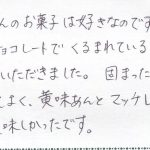 んのお菓子は好きなのです
ョコレートでくるまれている
いただきました。固まった
よく、黄味あんとマッケレ
味しかったです。